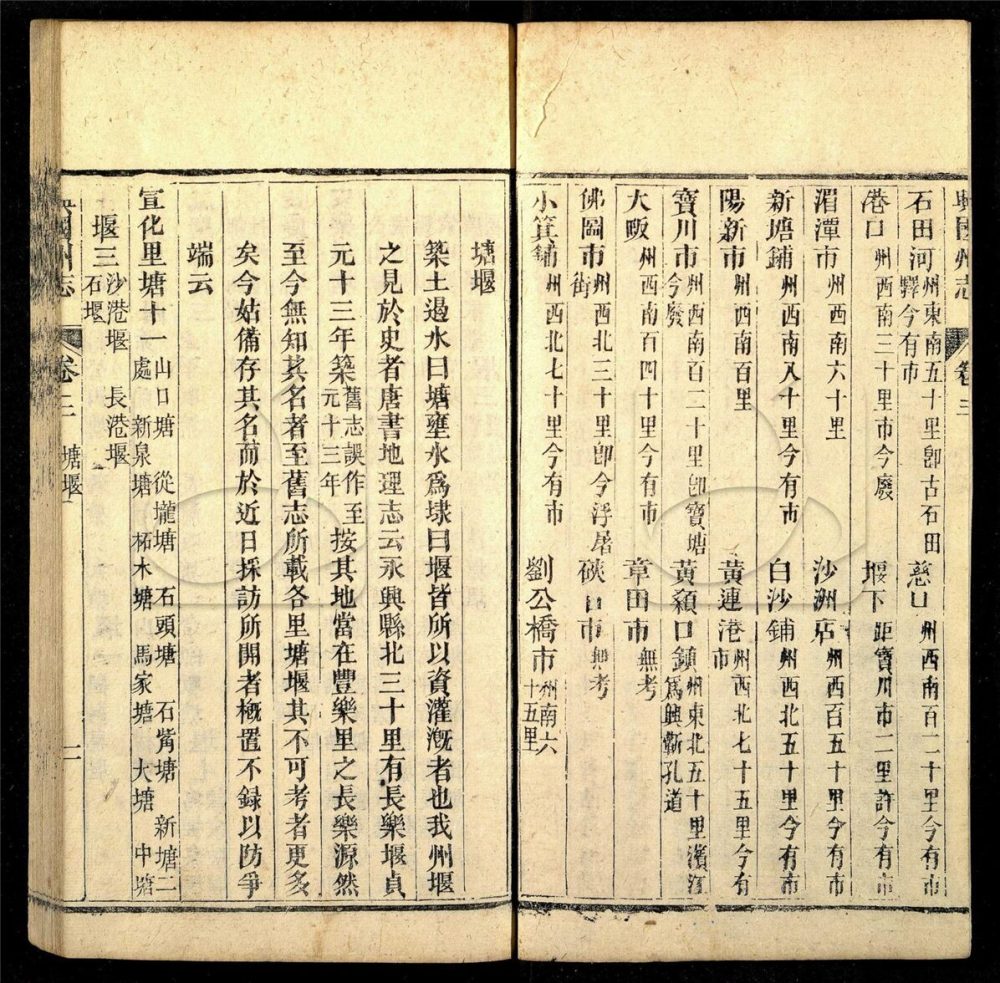 興國州志 卷三
石田河州東南五十里卽古石田驛今有市 慈口州西南百二十里今有市
港口州西南三十里市今廢 堰下距寶川市二里許今有市
湄潭市州西南六十里 沙洲店州西百五十里今有市
新塘鋪州西南八十里今有市 白沙鋪州西北五十里今有市
陽新市州西南百里 黃連港州西北七十五里今有市
寶川市州西南百二十里卽寶塘今廢 黃顙口鎮州東北五十里濱江爲興蘄孔道
大畈州西南百四十里今有市 章田市無考
佛圖市州西北三十里卽今浮屠街 硤口市無考
小箕鋪州西北七十里今有市 劉公橋市州南六十五里
塘堰
築土遏水曰塘壅水爲埭曰堰皆所以資灌漑者也我州堰
之見於史者唐書地理志云永興縣北三十里有長樂堰貞
元十三年築舊志誤作至元十三年按其地當在豐樂里之長樂源然
至今無知其名者至舊志所載各里塘堰其不可考者更多
矣今姑備存其名而於近日採訪所開者槪置不録以防爭
端云
宣化里塘十一處山口塘 從壠塘 石頭塘 石觜塘 新塘二 新泉塘 柘木塘 馬家塘 大塘 中塘
堰三沙港堰 長港堰 石堰
興國州志 卷三 塘堰 二